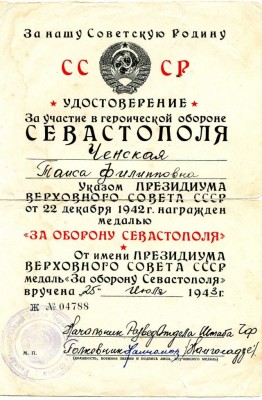 За нашу Советскую Родину
СС СР
УДОСТОВЕРЕНИЕ
За участие в героической обороне
СЕВАСТОПОЛЯ
Ченская
Таиса Филипповна
Указом ПРЕЗИДИУМА
ВЕРХОВНОГО СОВЕТА СССР
от 22 декабря 1942 г. награжден
медалью
«ЗА ОБОРОНУ СЕВАСТОПОЛЯ»
От имени ПРЕЗИДИУМА
ВЕРХОВНОГО СОВЕТА СССР
медаль «За оборону Севастополя»
вручена 25 Июля 1943 г.
Ж № 04788
Начальник РазведОтдела Штаба ЧФ
М. П. Полковник (Намгаладзе)